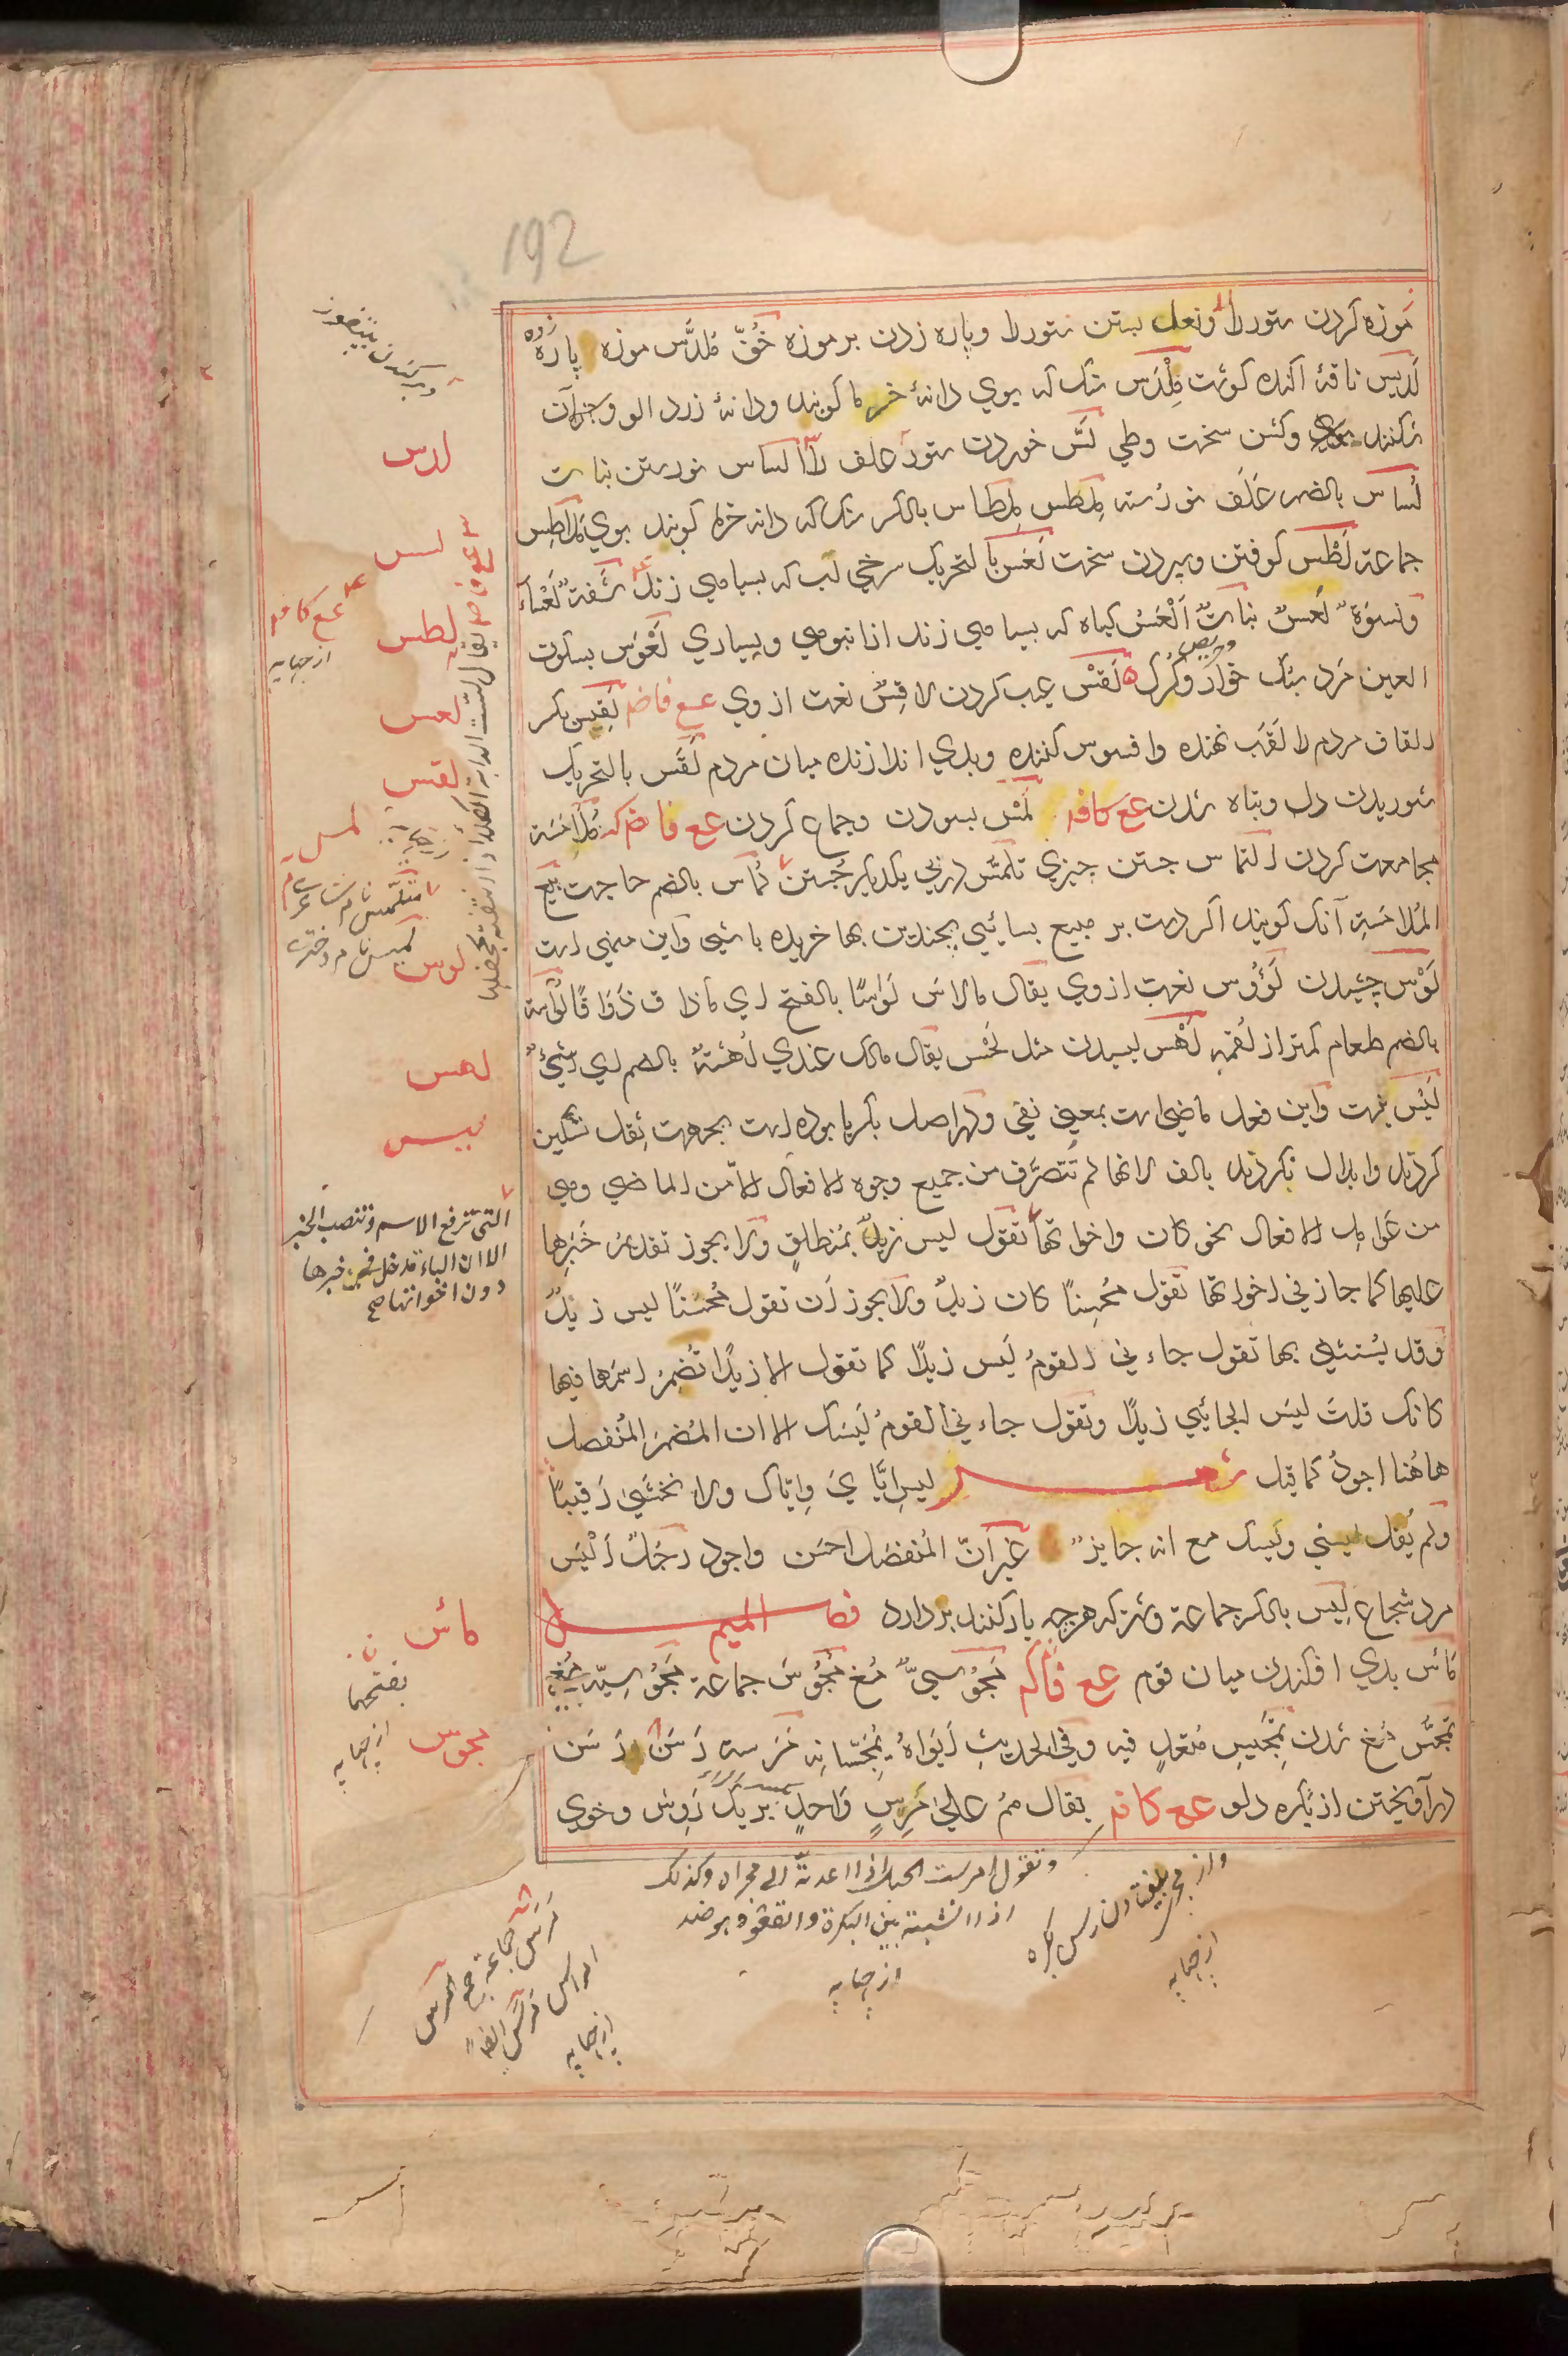 192
موزه کردن ستوررا ونعل بستن ستوررا وپاره زدن بر موزه خُفّ مُلدَّس موزه پاره زده
لَدیس ناقهٔ اکنده کوشت مِلْدَس سنک که بوي دانهٔ خرما کوبند ودانهٔ زرد الو وجز آن
شکنند وکشن سخت وطي لَسّ خوردن ستور علف را السا س نو رستن نبا ت
لُسا س بالضم علَف نو رُسته مِلطس مِلطاس بالکسر سنک که دانه خرما کوبند بوي مَلاطِس
جماعة لَطْس کوفتن وسپردن سخت لَعَس با لتحریک سرخي لب که بسیا هي زند شَفة لَعْساء
ونسوَة لُعسٌ نباتٌ اَلْعَسُ کیاه که بسیا هي زند از انبوهي وسیاري لَعْوَس بسکون
العین مَرد سبک خوار وکُرک لَقْسْ عیب کردن لا قِسٌ نعت از وي عـع فاضم لَقِس بکسر
القاف مردم را لقَب نهنده وافسوس کننده وبدي اندازنده میان مردم لَقَس بالتحریک
شوریدن دل وتباه شدن عـع کافم لَمْس بسودن وجماع کردن عـع فاضم کـ مُلامَسَة
مجامعت کردن التماس جستن چیزي تلمّس درپي یکدیکر جُستن لُماس بالضم حاجت بیع
المُلامَسَةِ آنک کویند اکر دست بر مبیع بسائي بچندین بها خریده باشي واین منهي است
لَوْس چشیدن لَؤُوس نعت از وي یقال مالاسَ لَواسًا بالفتح اي ماذا ق ذَوَا قًا لُوَاسة
بالضم طعام کمتر از لُقمه لَهْس لیسیدن مثل لَحْس یقال مالک عندي لُهْسَةٌ بالضم اي شَيْئٌ
لَیْسَ نیست واین فعل ماضي است بمعني نفي ودر اصل بکسر یا بوده است بجهت ثقل تسکین
کردند وابدال نکردند بالف لانها لم تتصرّف من جمیع وجوه الافعال الامن الماضي وهي
من عَوامِل الافعال نحو کان واخوا تها تقول لیس زیدٌ بمُنطلقٍ ولا یجوز تقدیمُ خَبَرِها
علیها کما جاز في اخوا تها تقول مُحْسِنًا کان زیدٌ ولا یجوز اَن تقول مُحْسِنًا لیس زیدٌ
وقد یُستثنی بها تقول جاءني القومُ لَیس زیدًا کما تقول الا زیدًا تُضمِرُ اسمَها فیها
کانک قلتَ لیسَ الجائي زیدًا وتقول جاءني القومُ لَیسَک الا ان المُضمَرَ المُنْفصل
هاهُنا اجودُ کما قیل شعـــر لیس اِیّا يَ وَاِیّاک ولا نخشَی رَقیبًا
ولم یُقل لیسني ولَیسک مع انه جایزٌ غیرَ اَنّ المُنفصَل احسَن واجود رجَلٌ اَلْیَس
مرد شجاع لِیس بالکسر جماعة وشتر که هرچه بار کنند بر دارد فصـــل المیم
مَأس بدي افکندن میان قوم عع فاکم مَجُوسيٌّ مُغ مَجُوس جماعة مَجُوسِیّة مُغي
تمَجُّس مُغ شدن تمجیس متعدٍ فیه وفي الحدیثِ اَبَواهُ یُمَجّسانِه مَرَسَة رَسَن مَرَس رَسَن
درآویختن از بکره دلو عع کافم یقال همُ علی مَرِسٍ وَاحدٍ بر یک رَوش وخوي
لدس
لسس
لطس
لعس
لقس
لمس
لوس
لهس
لیس
مأس
مجوس
عـع کافم
از جمایه
متلمّس نام شاعرے
لمیس نام دخترے
التي ترفع الاسم وتنصب الخبر
الا ان الباء تدخل في خبرها
دون اخواتها صح
بفتحها
از جمایه
وتقول امرست الحبل اذا اعدتَه الی مجراه وکذلک
اذا انشبته بین البکرة والقعو وهو ضد
از جمایه
از جمایه
مَرَس جماعة جمع
امراس
از جمایه